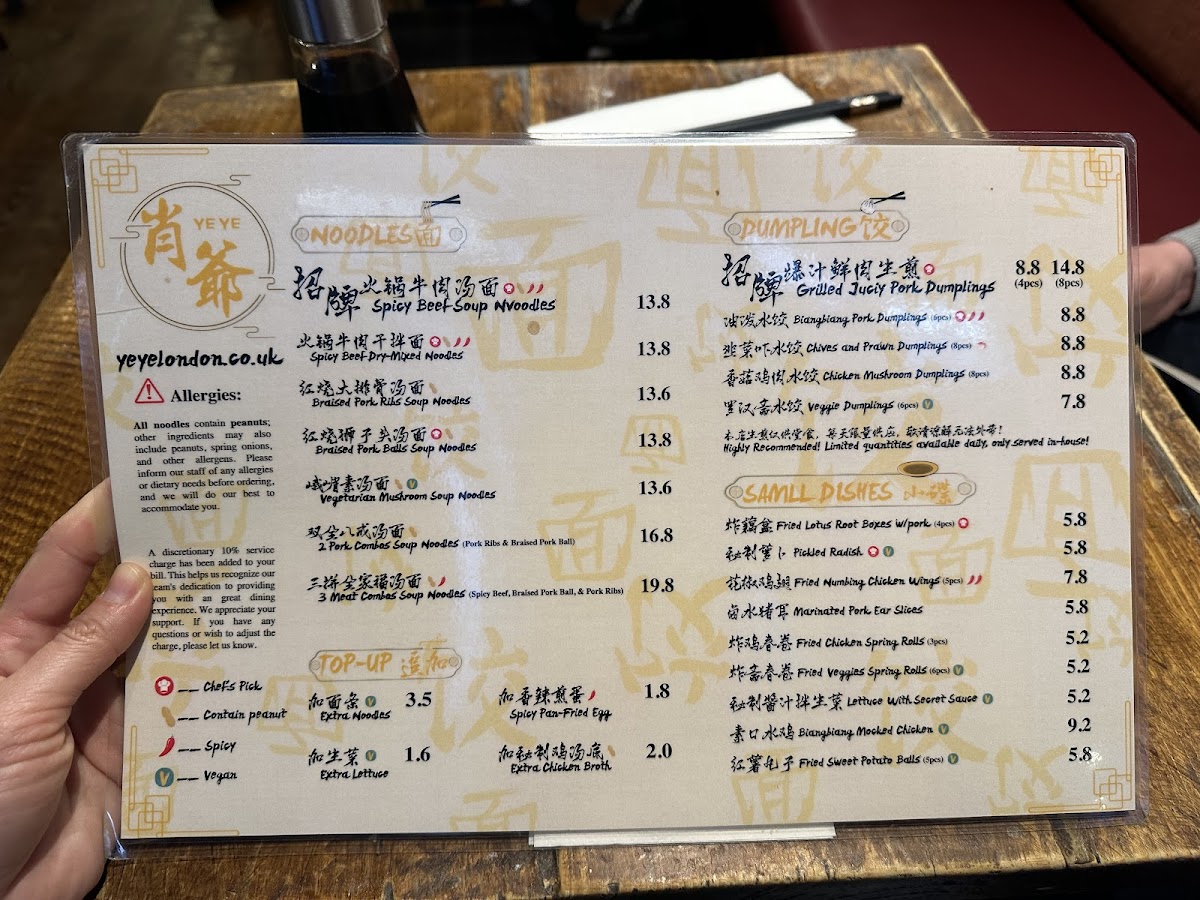 肖爷
YE YE
yeyelondon.co.uk
Allergies:
All noodles contain peanuts;
other ingredients may also
include peanuts, spring onions,
and other allergens. Please
inform our staff of any allergies
or dietary needs before ordering,
and we will do our best to
accommodate you.
A discretionary 10% service
charge has been added to your
bill. This helps us recognize our
team's dedication to providing
you with an great dining
experience. We appreciate your
support. If you have any
questions or wish to adjust the
charge, please let us know.
—— Chef's Pick
—— Contain peanut
—— Spicy
V —— Vegan
NOODLES 面
招牌火锅牛肉汤面
Spicy Beef Soup Nvoodles 13.8
火锅牛肉干拌面
Spicy Beef Dry-Mixed Noodles 13.8
红烧大排骨汤面
Braised Pork Ribs Soup Noodles 13.6
红烧狮子头汤面
Braised Pork Balls Soup Noodles 13.8
峨嵋素汤面 V
Vegetarian Mushroom Soup Noodles 13.6
双全八戒汤面
2 Pork Combas Soup Noodles (Pork Ribs & Braised Pork Ball) 16.8
三拼全家福汤面
3 Meat Combas Soup Noodles (Spicy Beef, Braised Pork Ball, & Pork Ribs) 19.8
TOP-UP 追加
加面条 V 3.5
Extra Noodles
加香辣煎蛋 1.8
Spicy Pan-Fried Egg
加生菜 V 1.6
Extra Lettuce
加秘制鸡汤底 2.0
Extra Chicken Broth
DUMPLING 饺
招牌爆汁鲜肉生煎 8.8 14.8
Grilled Juciy Pork Dumplings (4pcs) (8pcs)
油泼水饺 Biangbiang Pork Dumplings (6pcs) 8.8
韭菜虾水饺 Chives and Prawn Dumplings (8pcs) 8.8
香菇鸡肉水饺 Chicken Mushroom Dumplings (8pcs) 8.8
罗汉斋水饺 Veggie Dumplings (6pcs) V 7.8
本店生煎仅供堂食，每天限量供应，敬请谅解无法外带！
Highly Recommended! Limited quantities available daily, only served in-house!
SAMLL DISHES 小碟
炸藕盒 Fried Lotus Root Boxes w/pork (4pcs) 5.8
秘制萝卜 Pickled Radish V 5.8
花椒鸡翅 Fried Numbing Chicken Wings (5pcs) 7.8
卤水猪耳 Marinated Pork Ear Slices 5.8
炸鸡春卷 Fried Chicken Spring Rolls (3pcs) 5.2
炸斋春卷 Fried Veggies Spring Rolls (6pcs) V 5.2
秘制酱汁拌生菜 Lettuce With Secret Sauce V 5.2
素口水鸡 Biangbiang Mocked Chicken V 9.2
红薯丸子 Fried Sweet Potato Balls (5pcs) V 5.8